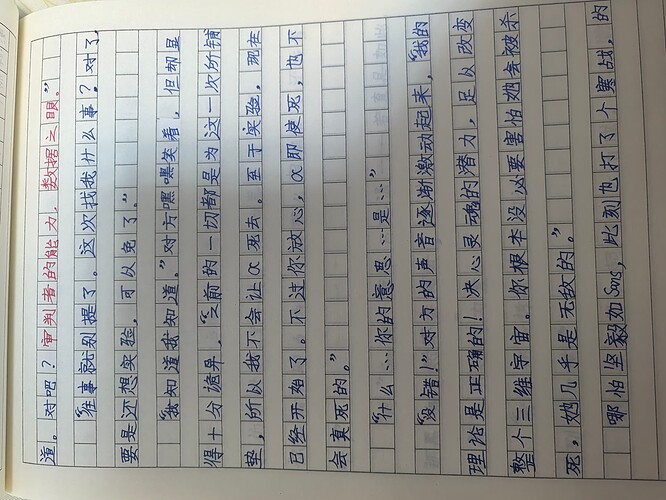 道。对吧？审判者的能力，数据之眼。”
“往事就别提了。这次找我什么事？对了，
要是还想实验，可以免了。”
“我知道我知道。”对方嘿嘿笑着，但却显
得十分诡异，“之前的一切都是为这一次所铺
垫，所以我不会让α死去。至于实验，现在
已经开始了。不过你放心，α即使死，也不
会真死的。”
“什么……你的意思……是……”
“没错！”对方的声音逐渐激动起来，“我的
理论是正确的！决心灵魂的潜力，足以改变
整个三维宇宙。你根本没必要害怕她会被杀
死，她几乎是无敌的。”
哪怕坚毅如Sans，此刻也打了个寒战，的